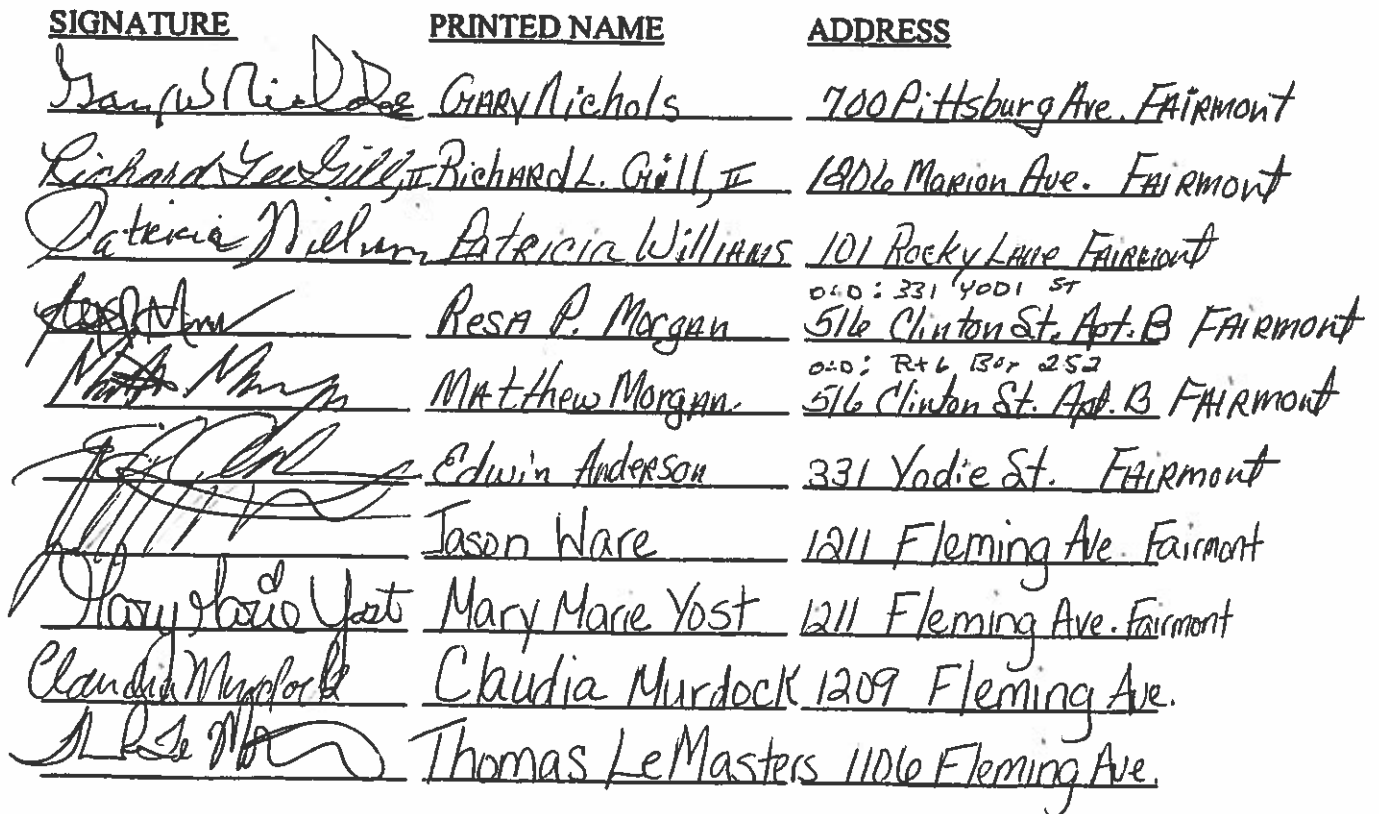 SIGNATURE PRINTED NAME ADDRESS
GARY Nichols 700 Pittsburg Ave. FAIRMONT
Richard Lee Gill, II RichARd L. Gill, II 1206 MARION Ave. FAIRMONT
Patricia PAtRiciA WilliAMS 101 Rocky LANE FAIRMONT
OLD: 331 YODI ST
ResA P. MorgAn 516 Clinton St. Apt. B FAIRMONT
OLD: Rt 6 Box 252
MAtthew MorgAn. 516 Clinton St. Apt. B FAIRMONT
Edwin AndeRSon 331 Yodie St. FAIRMONT
Jason Ware 1211 Fleming Ave. Fairmont
Mary Marie Yost Mary Marie Yost 1211 Fleming Ave. Fairmont
Claudia Murdock Claudia Murdock 1209 Fleming Ave.
Thomas LeMasters 1106 Fleming Ave.